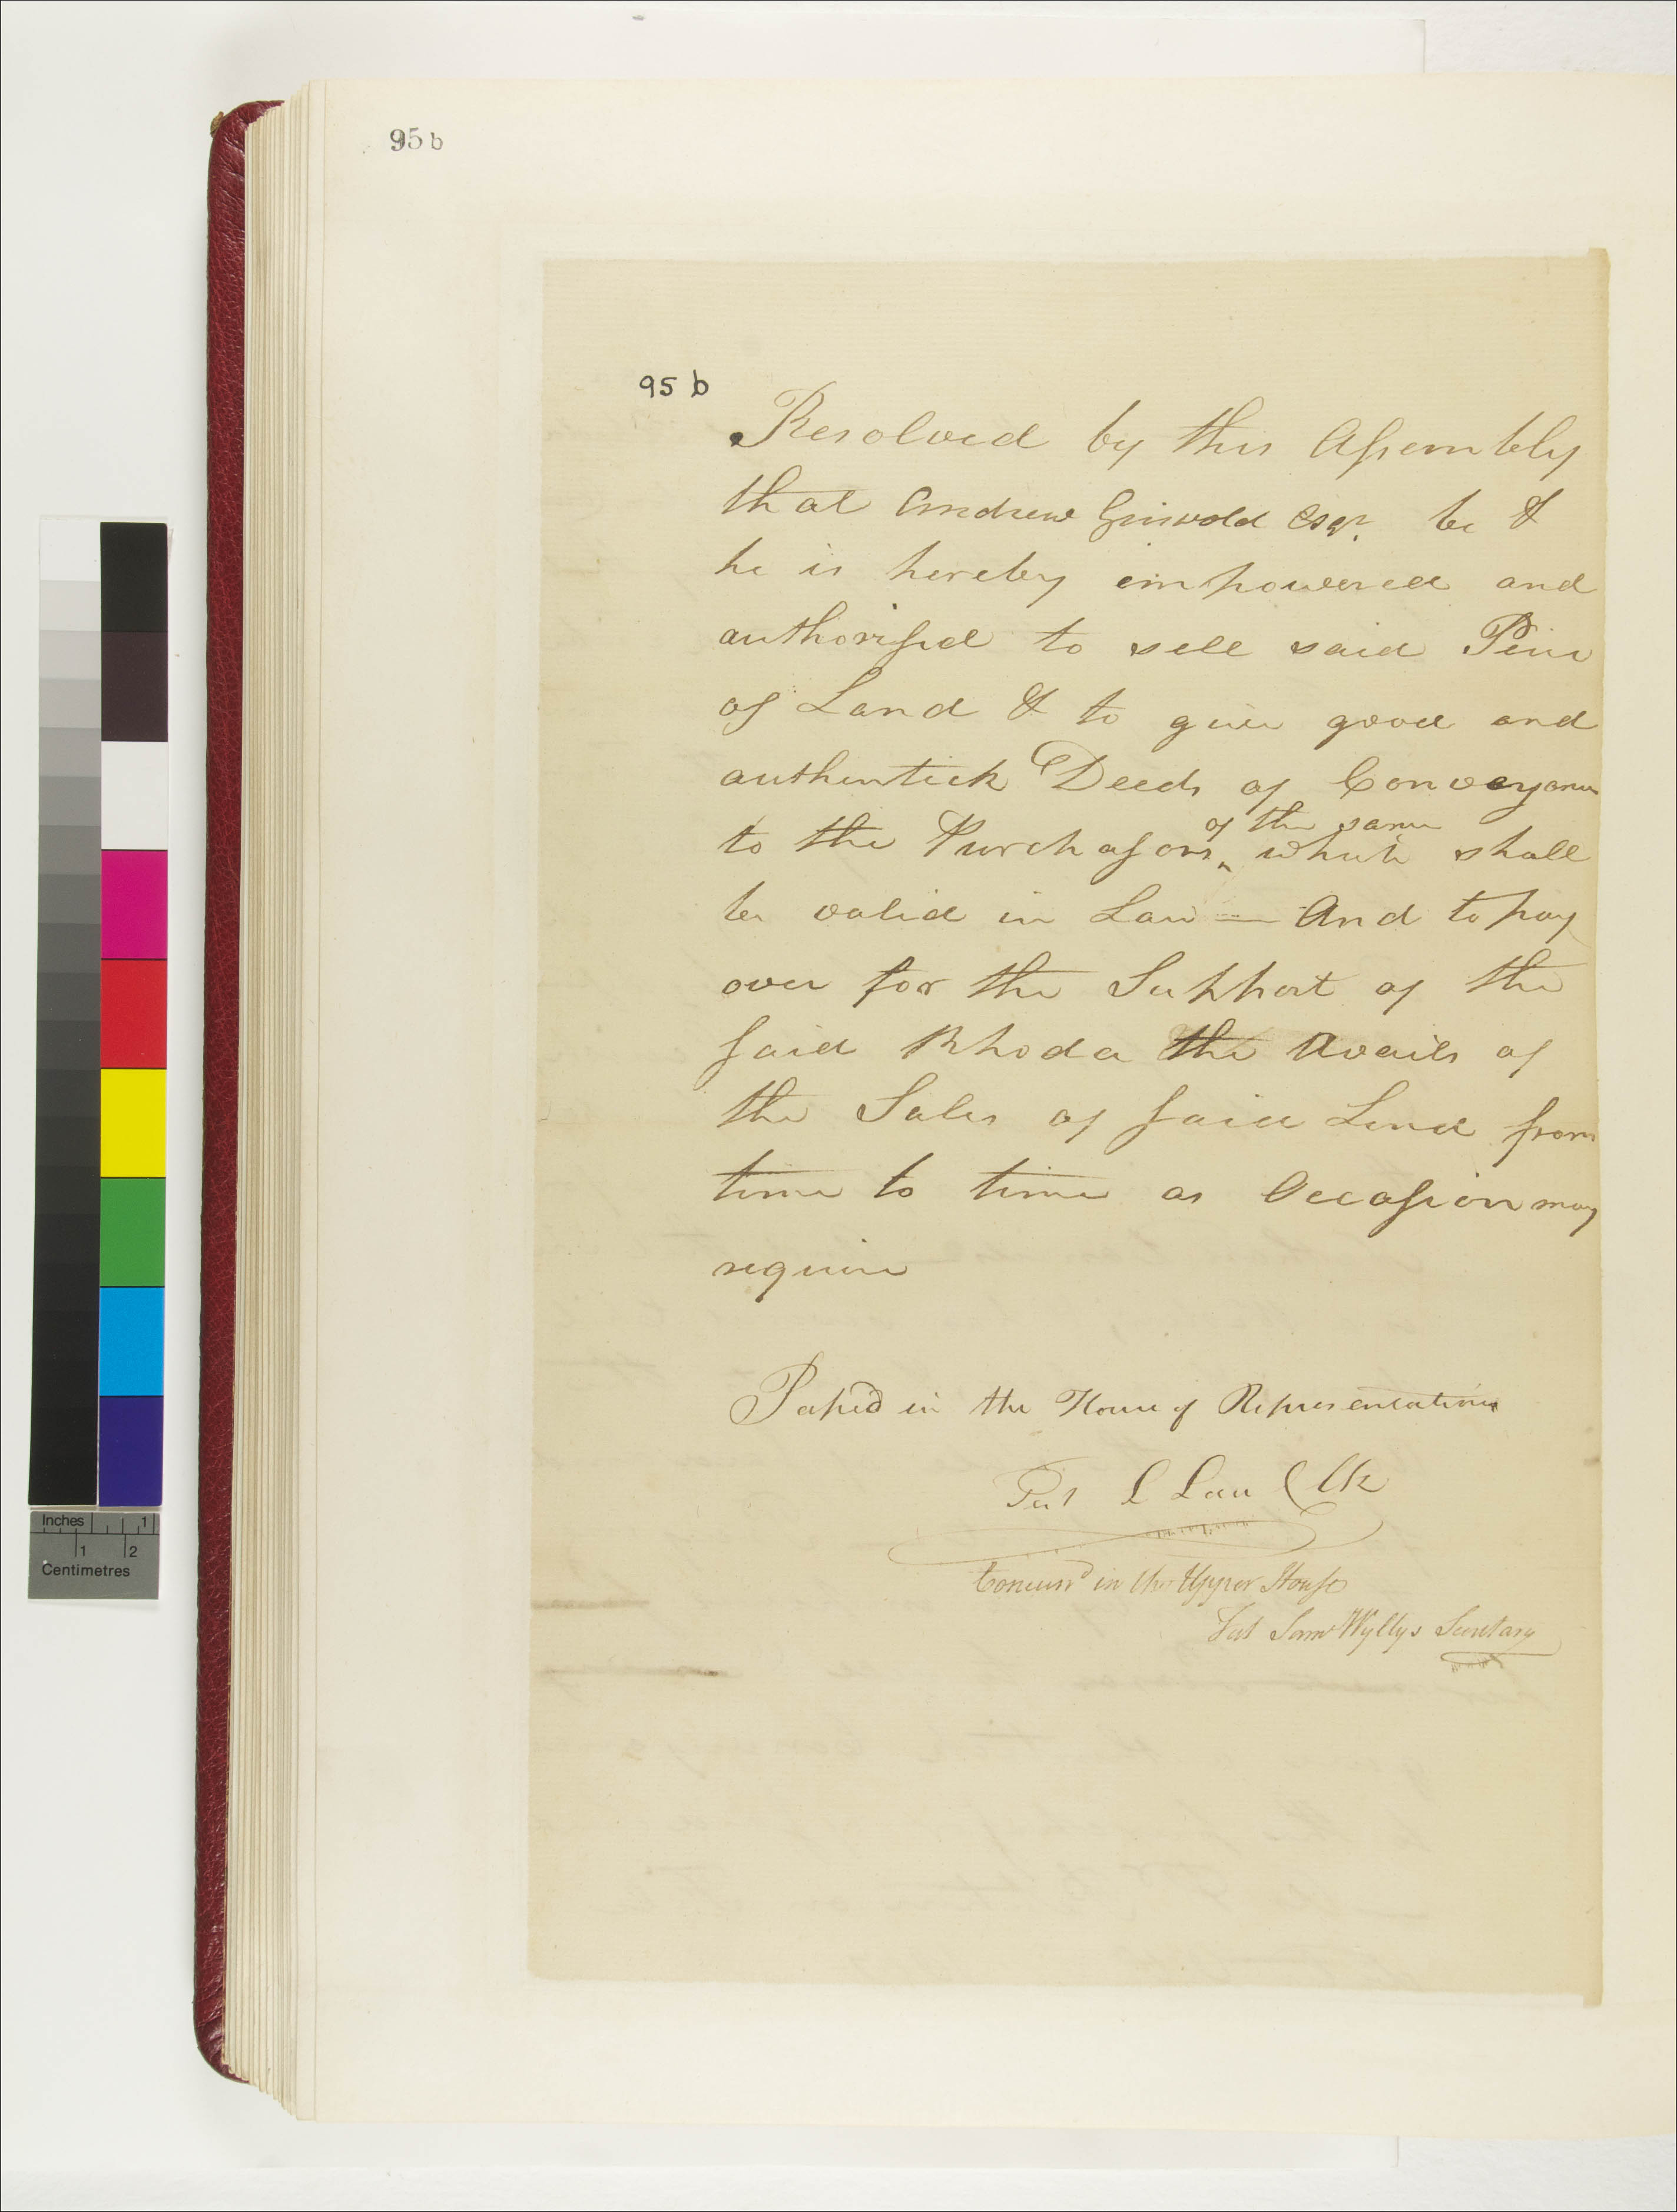 95 b
95 b
Resolved by this Assembly
that Andrew Griswold Esqr. be &
he is hereby impowered and
authorised to sell said Piece
of Land & to give good and
authentick Deeds of Conveyance
of the same
to the Purchasors ‸ which shall
be valid in Law — And to pay
over for the Support of the
said Rhoda the Avails of
the Sales of said Land from
time to time as Occasion may
require
Passed in the House of Representatives
Test L Law Clk
Concurrd in the Upper House
Test Saml Wyllys Secretary
Inches 1
1 2
Centimetres